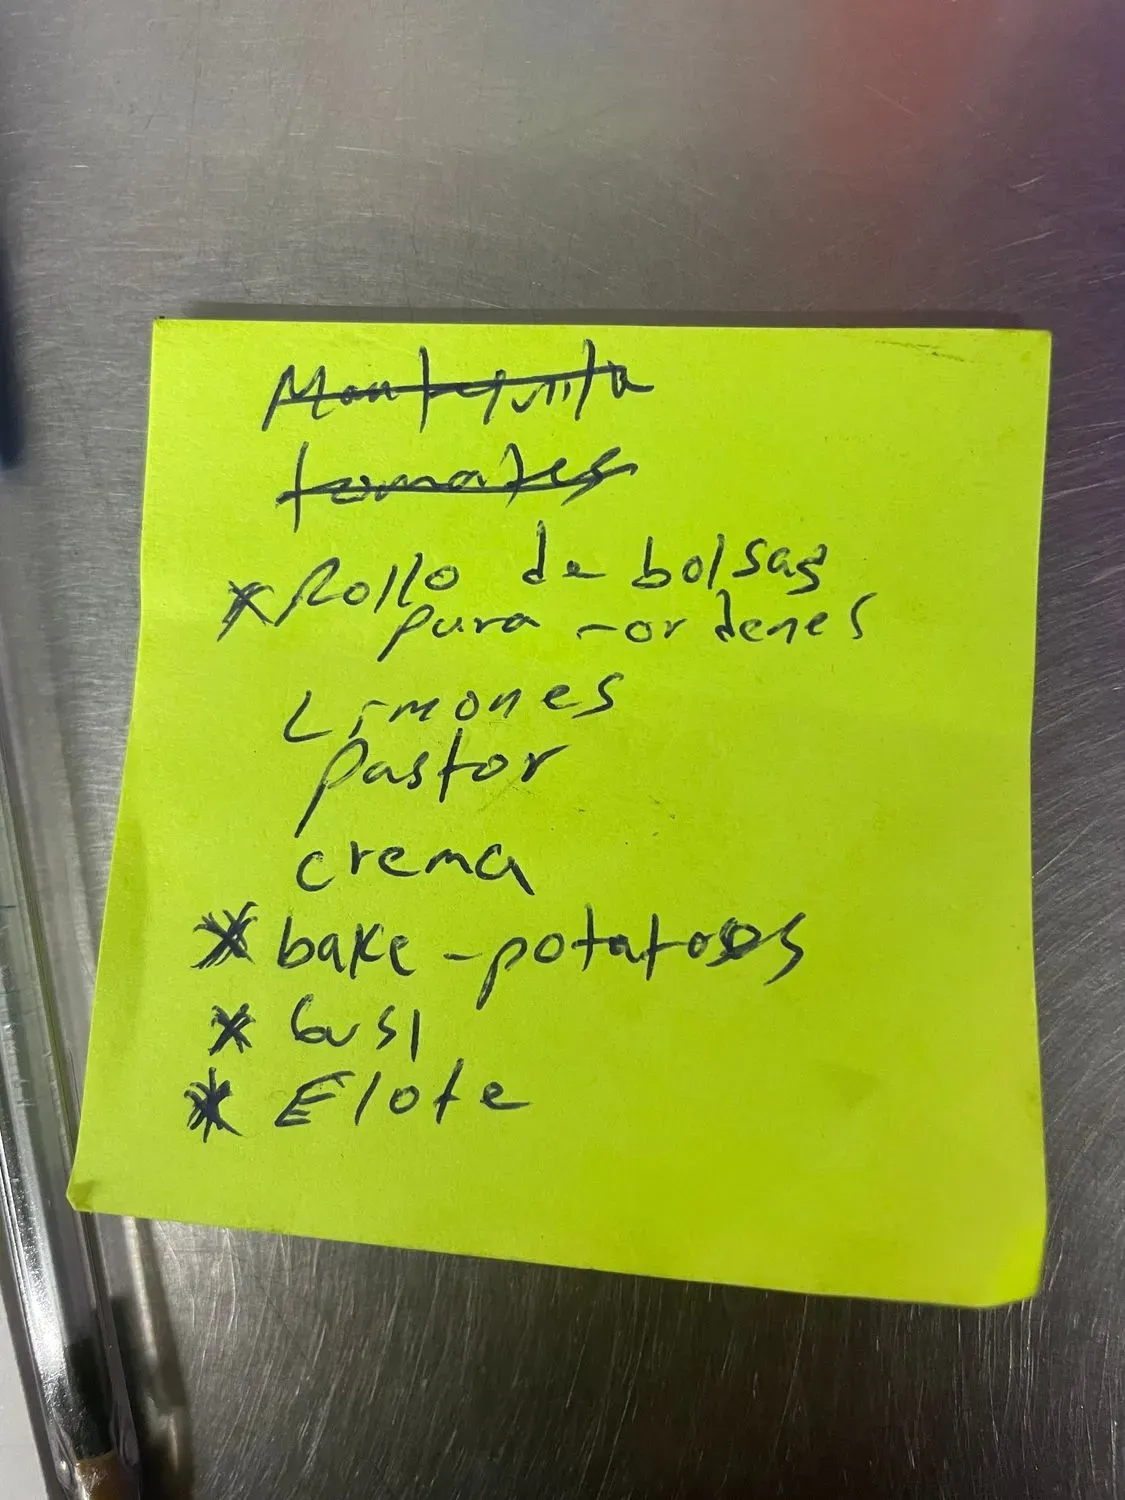 Mantequilla
tomates
* Rollo de bolsas
para - ordenes
Limones
pastor
crema
* bake - potatoes
*
* Elote